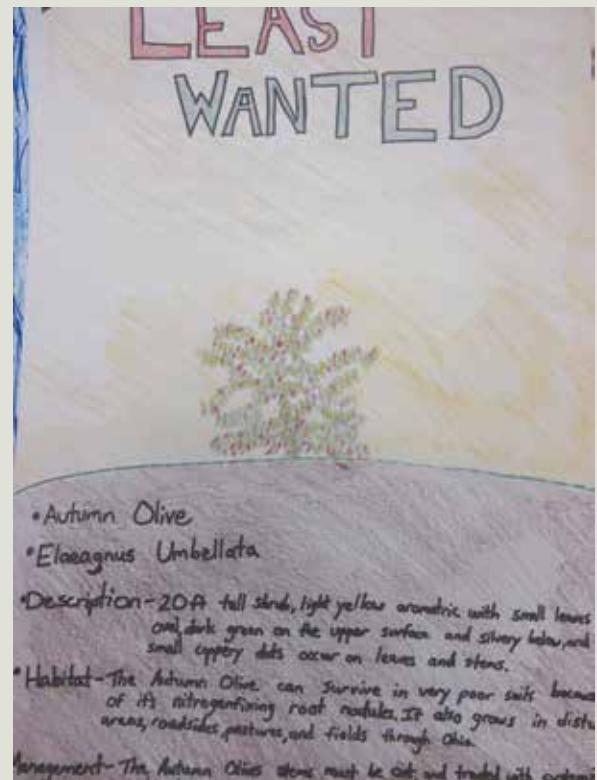 LEAST
WANTED
• Autumn Olive
• Elaeagnus Umbellata
• Description - 20ft tall shrub, light yellow aromatric with small leaves
oval, dark green on the upper surface and silvery below, and
small coppery dots occur on leaves and stems.
• Habitat - The Autumn Olive can survive in very poor soils
of it's nitrogenfixing root nodules. It also grows in
areas, roadsides, pastures, and fields through Ohio.
Management - The Autumn Olives stems must be cut and treated with